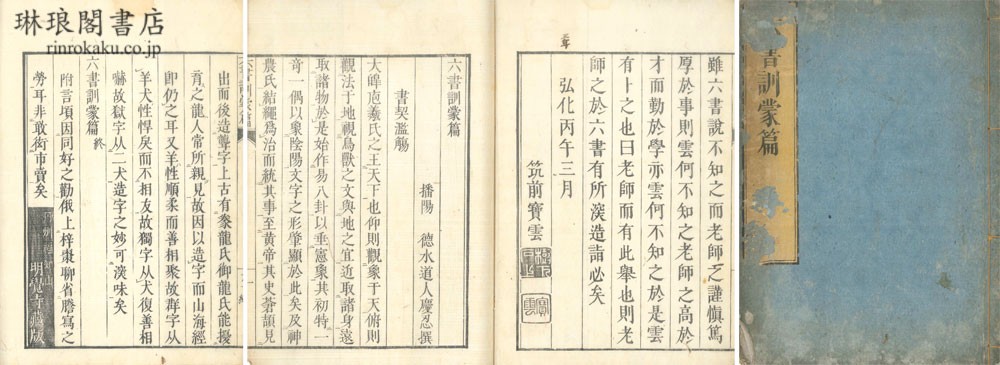 琳琅閣書店
rinrokaku.co.jp
書訓蒙篇
雖六書說不知之而老師之謹慎篤
厚於事則雲何不知之老師之高於
才而勤於學亦雲何不知之於是雲
有卜之也曰老師而有此舉也則老
師之於六書有所㴱造詣必矣
弘化丙午三月
筑前寶雲
寶雲
六書訓蒙篇
播陽 德水道人慶忍撰
書契濫觴
大皥庖羲氏之王天下也仰則觀象于天俯則
觀法于地視鳥獸之文與地之宜近取諸身遠
取諸物於是始作易八卦以垂憲象其初特一
奇一偶以象陰陽文字之形肇顯於此矣及神
農氏結繩爲治而統其事至黃帝其史蒼頡見
出而後造龍字上古有豢龍氏御龍氏能擾
育之龍人常所親見故因以造字而山海經
卽仍之耳又羊性順柔而善相聚故群字从
羊犬性悍戾而不相友故獨字从犬復善相
嚇故獄字从二犬造字之妙可㴱味矣
六書訓蒙篇 終
附言頃因同好之勸俄上梓棗聊省謄寫之
勞耳非敢衒市賣矣
明覺寺藏版